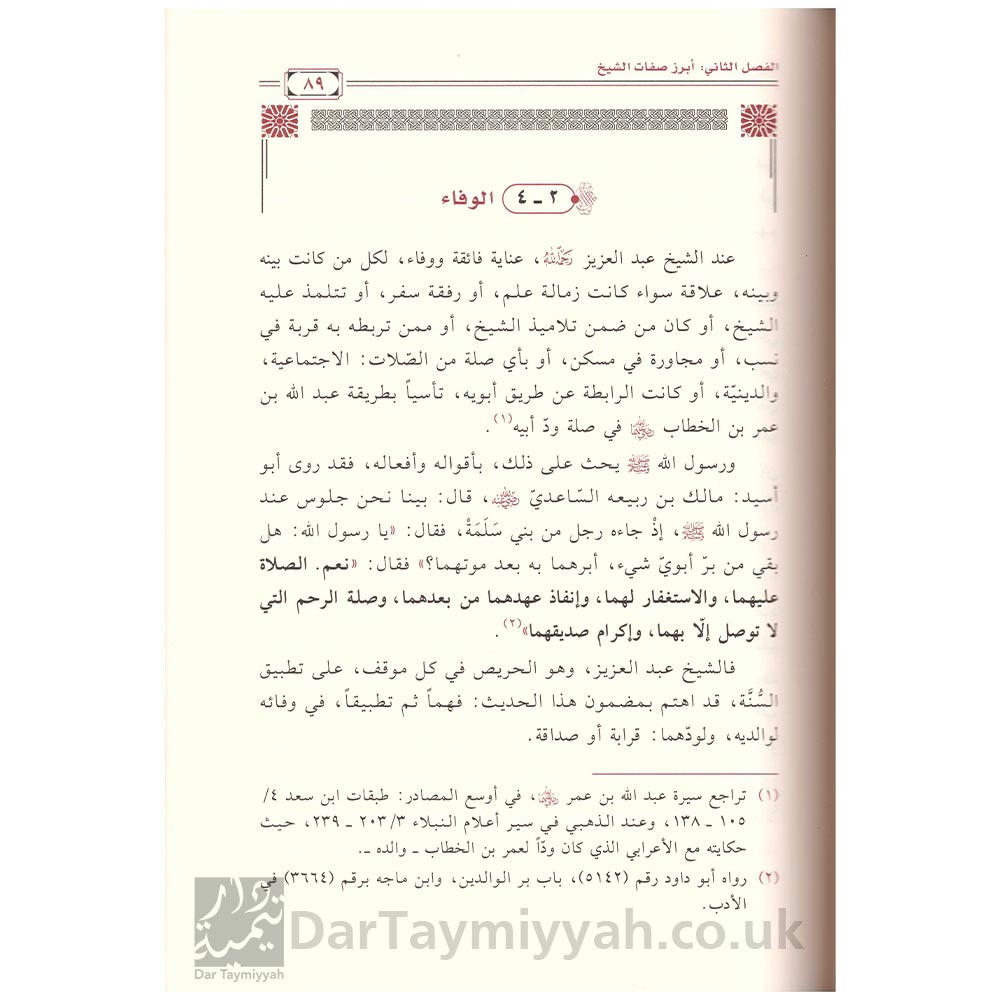 الفصل الثاني: أبرز صفات الشيخ
٨٩
٢ ـ ٤ الوفاء
عند الشيخ عبد العزيز رحمه الله، عناية فائقة ووفاء، لكل من كانت بينه
وبينه، علاقة سواء كانت زمالة علم، أو رفقة سفر، أو تتلمذ عليه
الشيخ، أو كان من ضمن تلاميذ الشيخ، أو ممن تربطه به قربة في
نسب، أو مجاورة في مسكن، أو بأي صلة من الصّلات: الاجتماعية،
والدينيّة، أو كانت الرابطة عن طريق أبويه، تأسياً بطريقة عبد الله بن
عمر بن الخطاب رضي الله عنهما في صلة ودّ أبيه(١).
ورسول الله ﷺ يحث على ذلك، بأقواله وأفعاله، فقد روى أبو
أسيد: مالك بن ربيعه السّاعديّ رضي الله عنه، قال: بينا نحن جلوس عند
رسول الله ﷺ، إذْ جاءه رجل من بني سَلَمَةْ، فقال: «يا رسول الله: هل
بقي من برّ أبويّ شيء، أبرهما به بعد موتهما؟» فقال: «نعم. الصلاة
عليهما، والاستغفار لهما، وإنفاذ عهدهما من بعدهما، وصلة الرحم التي
لا توصل إلّا بهما، وإكرام صديقهما»(٢).
فالشيخ عبد العزيز، وهو الحريص في كل موقف، على تطبيق
السُّنَّة، قد اهتم بمضمون هذا الحديث: فهماً ثم تطبيقاً، في وفائه
لوالديه، ولودّهما: قرابة أو صداقة.
(١) تراجع سيرة عبد الله بن عمر رضي الله عنهما، في أوسع المصادر: طبقات ابن سعد ٤/
١٠٥ ـ ١٣٨، وعند الذهبي في سير أعلام النبلاء ٢٠٣/٣ ـ ٢٣٩، حيث
حكايته مع الأعرابي الذي كان ودّاً لعمر بن الخطاب ـ والده ـ.
(٢) رواه أبو داود رقم (٥١٤٢)، باب بر الوالدين، وابن ماجه برقم (٣٦٦٤) في
الأدب.
دار تيمية
Dar Taymiyyah
DarTaymiyyah.co.uk